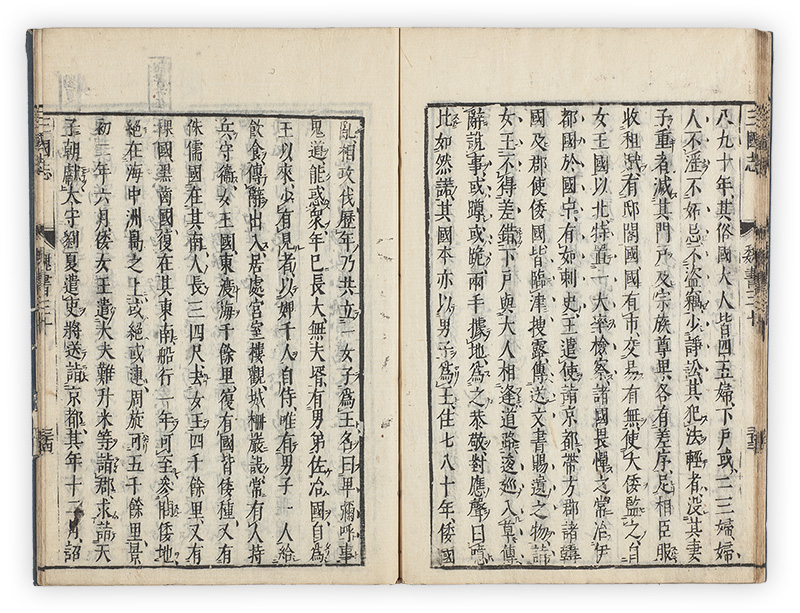 三國志 魏書三十
八九十年其俗國大人皆四五婦下戶或二三婦婦
人不淫不妒忌不盗竊少諍訟其犯法輕者没其妻
子重者滅其門戶及宗族尊卑各有差序足相臣服
收租賦有邸閣國國有市交易有無使大倭監之自
女王國以北特置一大率檢察諸國畏憚之常治伊
都國於國中有如刺史王遣使詣京都帶方郡諸韓
國及郡使倭國皆臨津搜露傳送文書賜遺之物詣
女王不得差錯下戶與大人相逢道路逡巡入草傳
辭說事或蹲或跪兩手據地爲之恭敬對應聲曰噫
比如然諾其國本亦以男子爲王住七八十年倭國
亂相攻伐歷年乃共立一女子爲王名曰卑彌呼事
鬼道能惑衆年已長大無夫壻有男弟佐治國自爲
王以來少有見者以婢千人自侍唯有男子一人給
飲食傳辭出入居處宮室樓觀城柵嚴設常有人持
兵守衛女王國東渡海千餘里復有國皆倭種又有
侏儒國在其南人長三四尺去女王四千餘里又有
裸國黑齒國復在其東南船行一年可至參問倭地
絕在海中洲島之上或絕或連周旋可五千餘里景
初二年六月倭女王遣大夫難升米等詣郡求詣天
子朝獻太守劉夏遣吏將送詣京都其年十二月詔
三國志 魏書三十